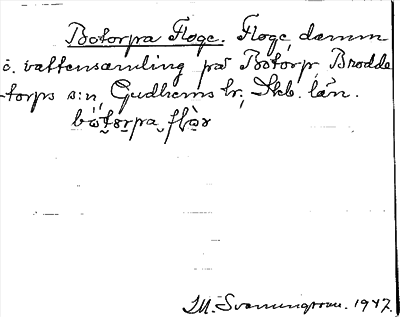 Botorpa Floge. Floge, damm
o. vattensamling på Botorp, Brodde-
torps s:n, Gudhems hr, Skb. län.
M. Svenningsson. 1947.